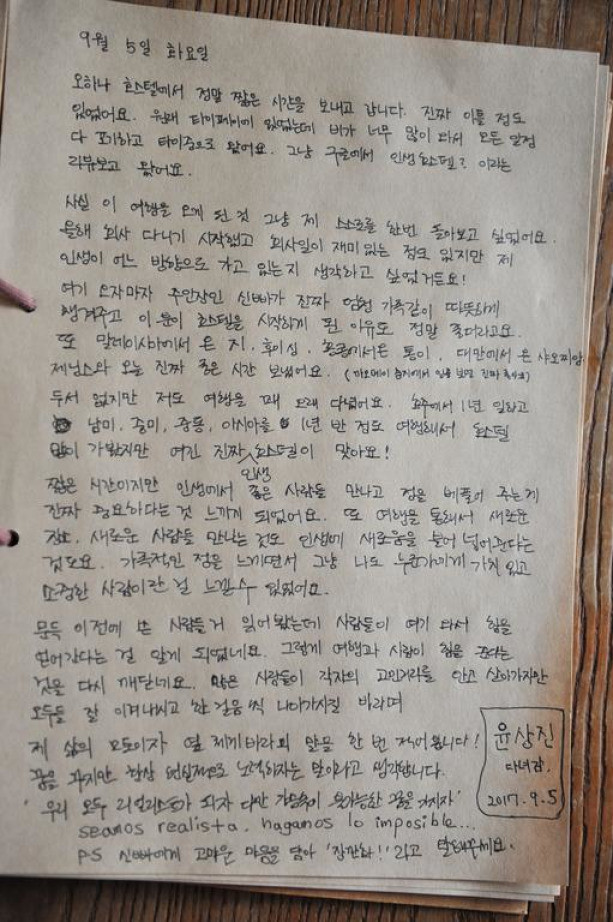 9월 5일 화요일
오하나 호스텔에서 정말 짧은 시간을 보내고 갑니다. 진짜 이틀 정도
있었어요. 원래 타이페이에 있었는데 비가 너무 많이 와서 모든 일정
다 포기하고 타이중으로 왔어요. 그냥 구글에서 인생 호스텔? 이라는
리뷰보고 왔어요.
사실 이 여행을 오게 된 것 그냥 제 스스로를 한번 돌아보고 싶었어요.
올해 회사 다니기 시작했고 회사일이 재미있는 점도 있지만 제
인생이 어느 방향으로 가고 있는지 생각하고 싶었거든요!
여기 오자마자 주인장인 신빠가 진짜 엄청 가족같이 따뜻하게
챙겨주고 이 분이 호스텔을 시작하게 된 이유도 정말 좋더라고요.
또 말레이시아에서 온 지, 후이싱, 홍콩에서온 통이, 대만에서 온 샤오찌앙
제닝스와 오늘 진짜 좋은 시간 보냈어요. (까오메이 습지에서 일몰 보면 진짜
두서 없지만 저도 여행을 꽤 오래 다녔어요. 호주에서 1년 일하고
남미, 중미, 중동, 아시아를 1년 반 정도 여행해서 호스텔
많이 가봤지만 여긴 진짜 인생 호스텔이 맞아요!
짧은 시간이지만 인생에서 좋은 사람들 만나고 정을 베풀어 주는게
진짜 중요하다는 것 느끼게 되었어요. 또 여행을 통해서 새로운
장소, 새로운 사람을 만나는 것도 인생에 새로움을 불어 넣어준다는
것도요. 가족적인 정을 느끼면서 그냥 나도 누군가에게 가치 있고
소중한 사람이란 걸 느낄 수 있었어요.
문득 이전에 쓴 사람들거 읽어봤는데 사람들이 여기 와서 힘을
얻어간다는 걸 알게 되었네요. 그렇게 여행과 사람이 힘을 준다는
것을 다시 깨닫네요. 많은 사람들이 각자의 고민거리를 안고 살아가지만
모두들 잘 이겨내시고 한 걸음씩 나아가시길 바라며
제 삶의 모토이자 체게바라의 말을 한 번 적어봅니다!
꿈을 꾸지만 항상 현실적으로 노력하자는 말이라고 생각합니다.
'우리 모두 리얼리스트가 되자 다만 가슴속에 불가능한 꿈을 가지자'
seamos realista, hagamos lo imposible...
P.S 신빠에게 고마운 마음을 담아 '잠깐화!' 라고 말해주세요.
윤상진
다녀감.
2017. 9. 5